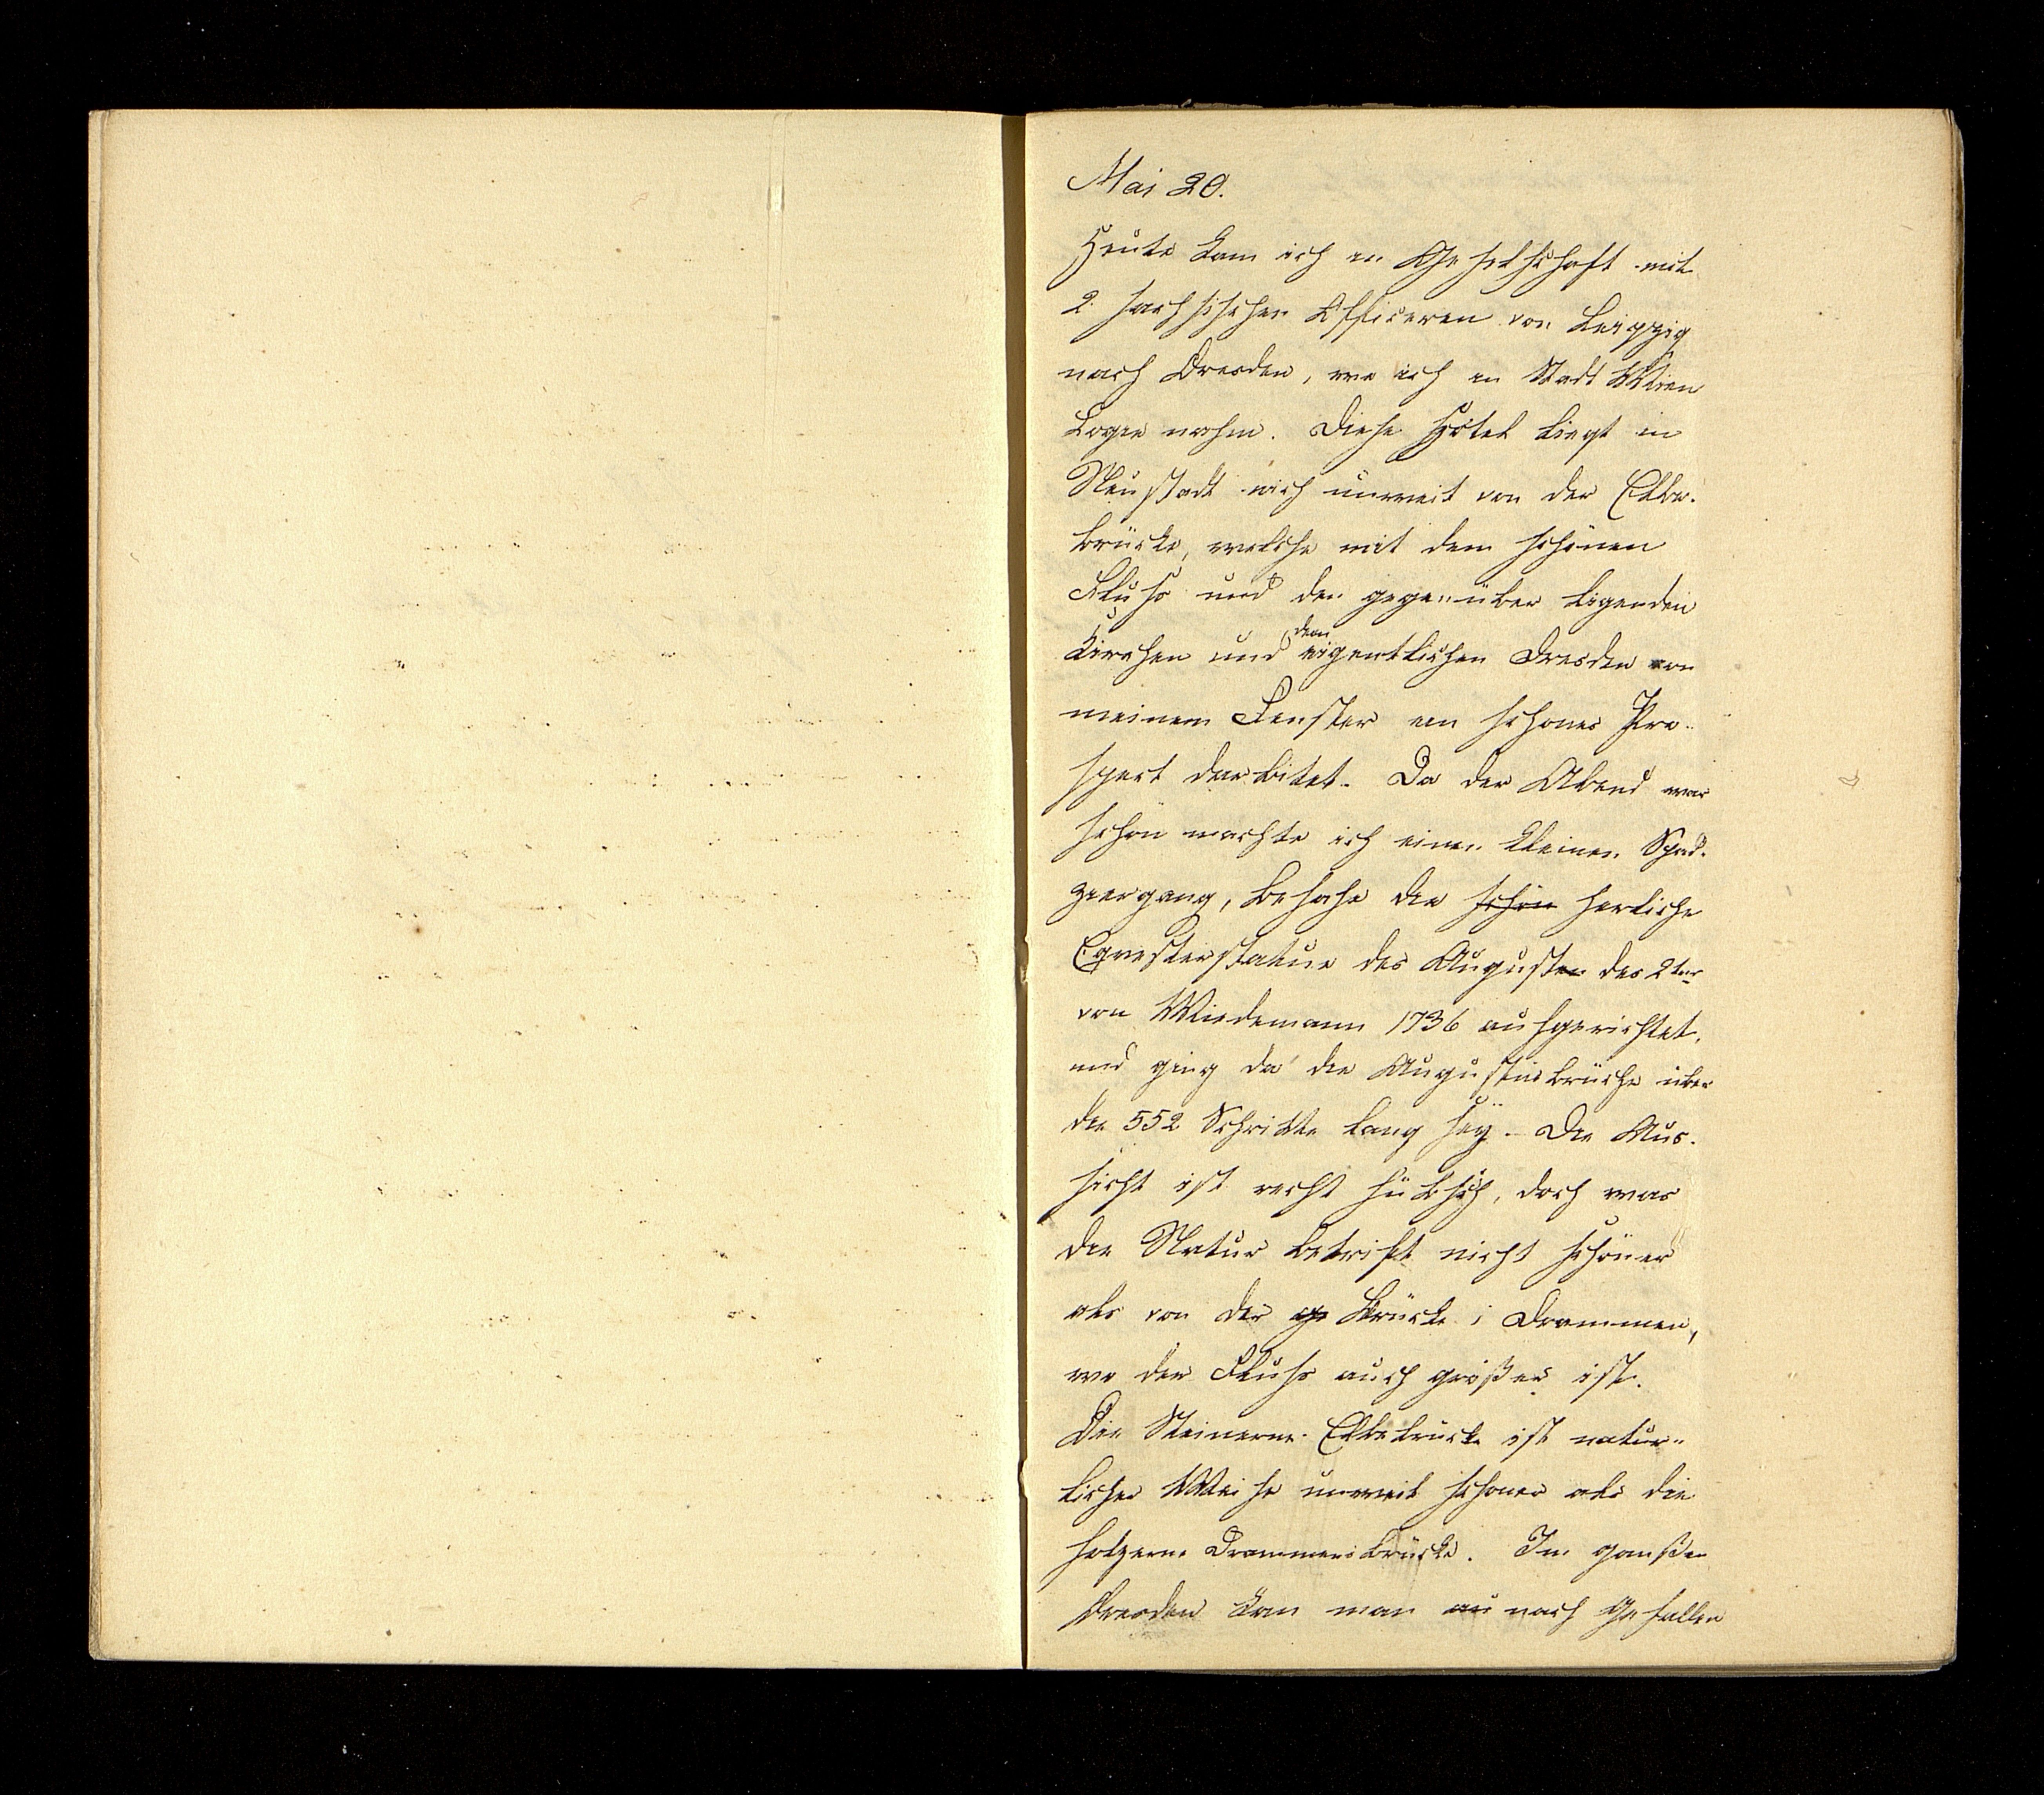 Mai 20.
Heute kam ich in Gesellschaft mit
2 sachsischen Officeren von Leipzig
nach Dresden, wo ich in Stadt Wien
Logie nahm. Diese Hôtel liegt in
Neustadt nich unweit von der Elbe-
brücke, welche mit dem schönen
Fluss und den gegenüber ligenden
Kirchen und dem eigentlichen Dresden von
meinem Fenster ein schones Pro-
spect darbitet. Da der Abend war
schön machte ich einen kleinen Spad-
ziergang, besahe die schön herliche
Eqvesterstatue des Augusten des 2ter
von Wiedemann 1736 aufgerichtet,
und ging da die Augustusbrüche über
die 552 Schritte lang sey. Die Aus-
sicht ist recht hübsch, doch was
die Natur betrift nicht schöner
als von der ge Brücke i Drammen,
wo der Fluss auch größer ist.
Die Steinerne Elbebrucke ist natur-
licher Weise unweit schoner als die
holzerne Drammensbrücke. In ganßen
Dresden kan man au nach Gefallen